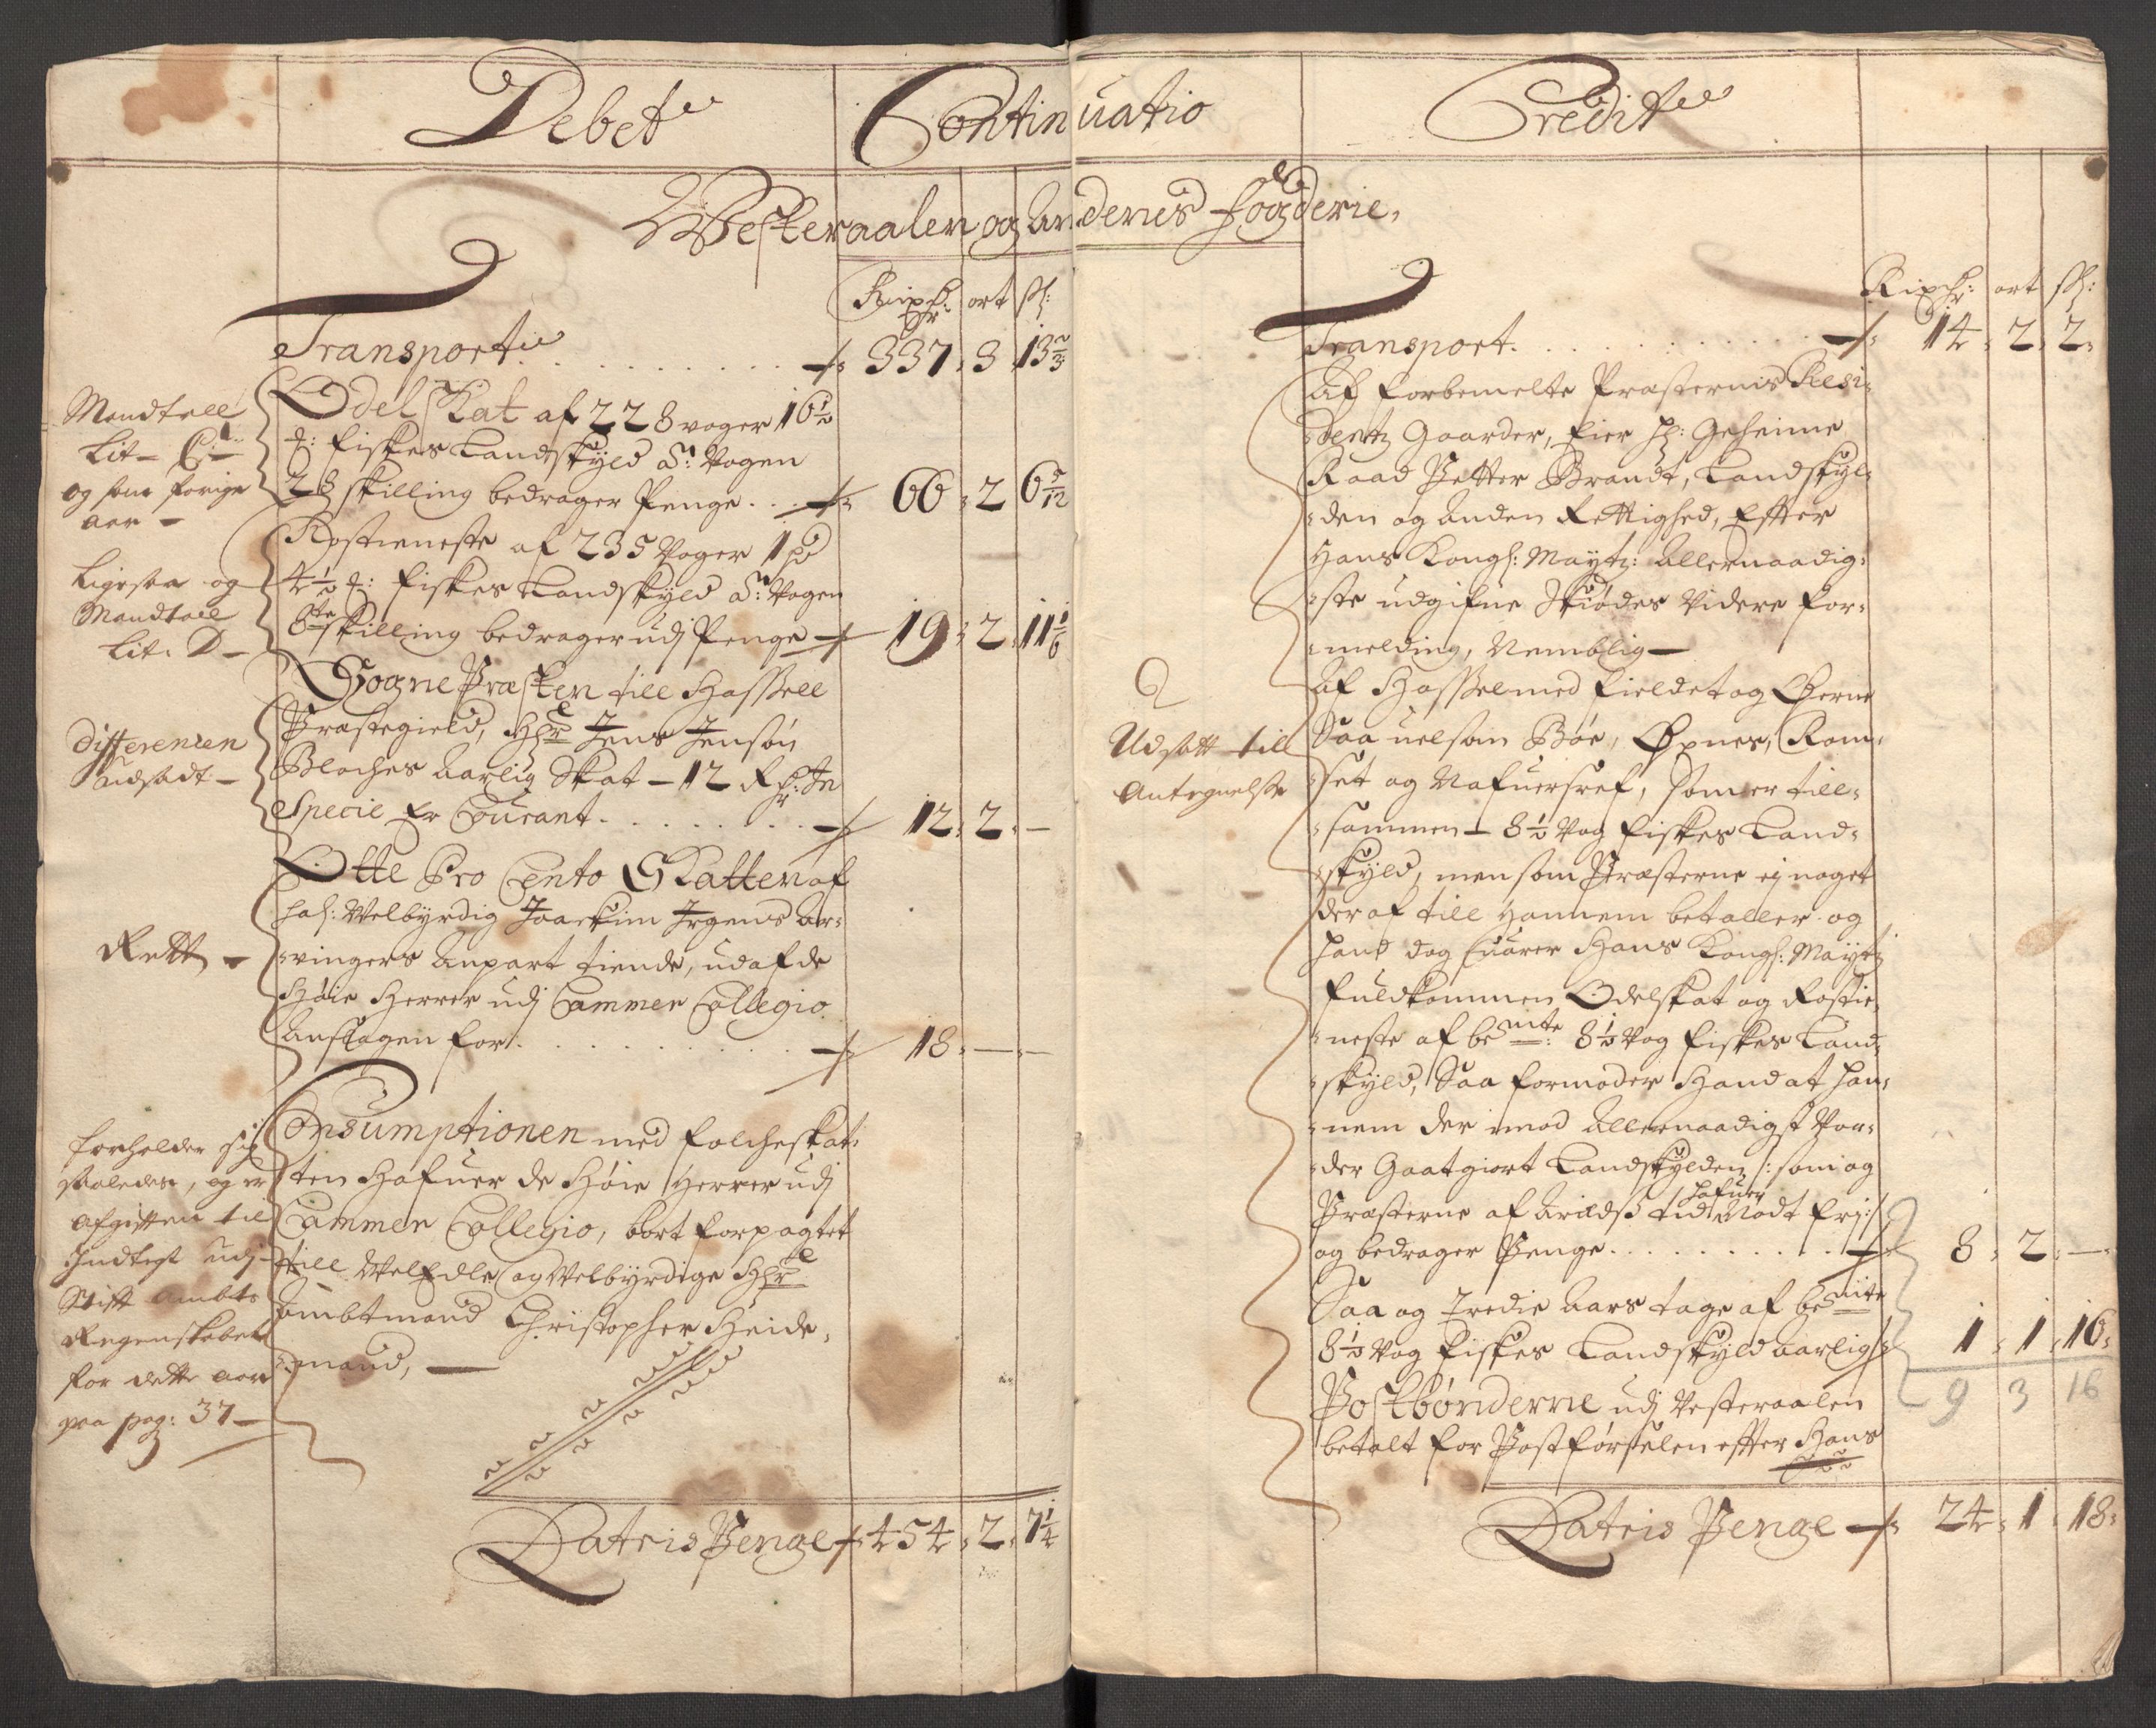 Debet Continuatio Credit
Westeraalen og Andenes Fogderie,
Rixdr: ort ſſ:
Transport . . . . . . . . . . 337 , 3 , 13 2/3
Mandtall
Lit- C:-
og som forige
aar -
Odel Skat af 228 voger 16½
℔: fiskes Landskyld àr: Vogen
28 skilling bedrager Penge . . 66 , 2 6 5/12
Ligesaa og
Mandtall
Lit. D -
Rostieneste af 235 Voger 1 pd
4½ ℔: fiskes Landskyld àr: Vogen
8te skilling bedrager udj Penge 19 , 2 , 11 1/6
Differencen
Udsadt -
Sogne Præsten till Hassell
Præstegield, Hr Jens Jensøn
Bloches aarlig Skat - 12 Rdr: In
Specie Er Courant . . . . . . . 12 , 2 , -
Rett -
Otte Pro Cento Skatten af
Sal: Velbyrdig Joackim Irgens Ar-
vingers Anpart tiende, ud af de
Høie Herrer udj Cammer Collegio
Anslagen for . . . . . . . . . 18 , - , -
forholder sig
saaledes, og er
afgiften til
Indtegt udj
Stift Ambts
Regenskabet
for dette aar
paa pag: 37 -
Consumptionen med folcheskat-
ten Hafuer de Høie Herrer udj
Cammer Collegio, bort forpagtet
till Vel Edle og Velbyrdige Hr
Ambtmand Christopher Heide-
mand, -
Latris Penge 454 , 2 , 7 1/4
Rixdr: ort ſſ:
Transport . . . . . . . . . . 14 , 2 , 2
Af forbemelte Præsternis Resi-
dentz Gaarder, Eier H: Geheime
Raad Petter Brandt, Landskyl-
den og Anden Rettighed, Effter
Hans Kongl: Maytz: Allernaadig-
ste udgifne Skiødes Videre for-
melding, Nemblig -
Udsatt till
Antegnelse
Af Hassel med fieldet og Øerne
Saa uelsom Bøe, Øxnes, Ram-
set og Nafuersref, Som er till-
sammen - 8½ Vog fiskes Land-
skyld, men som Præsterne ej noget
der af till Hannem betaller og
Hand dog suarer Hans Kongl: Maytz
fuldkommen Odelskat og Rostie-
neste af bemte: 8½ Vog fiskes Land-
skyld, Saa formoder Hand at Han-
nem der imod Allernaadigst Vor-
der Gaatgiort Landskylden /: som og
Præsterne af Arilds tid hafuer Nødt frj :/
og bedrager Penge . . . . . . . . . . 8 , 2 , -
Saa og Tredie Aars tage af bemte
8½ Vog fiskes Landskyld aarlig 1 , 1 , 16
9 3 16
Postbønderne udj Vesteraalen
betalt for Postførselen effter Hans
Latris Penge 24 , 1 , 18